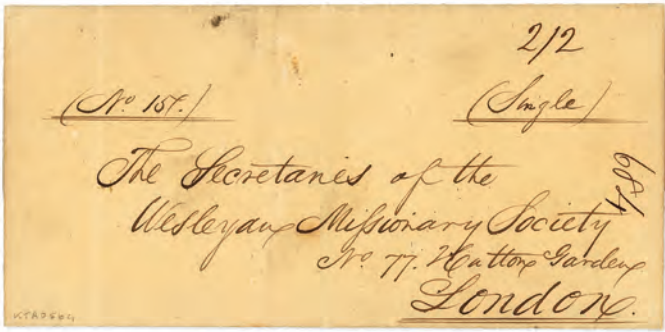 2/2
(No 15t.)
(Single)
The Secretaries of the
Wesleyan Missionary Society
No 77. Hatton Garden
London.